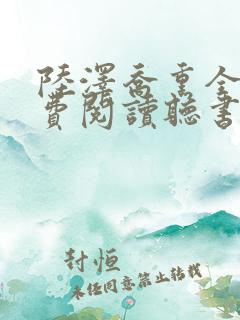 陸澤喬重全
費閱讀聽書
封恒
未经同意禁止转载